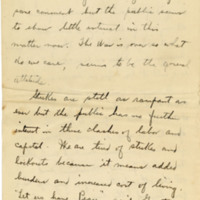 comment but the public seem
to show little interest in this
matter now. The War is over so what
do we care, seems to be the general
attitude.
Strikes are still as rampant as
ever but the public has no further
interest in these clashes of labor and
capital. We are tired of strikes and
lockouts because it means added
burdens and increased cost of living.
"Let us have Peace"